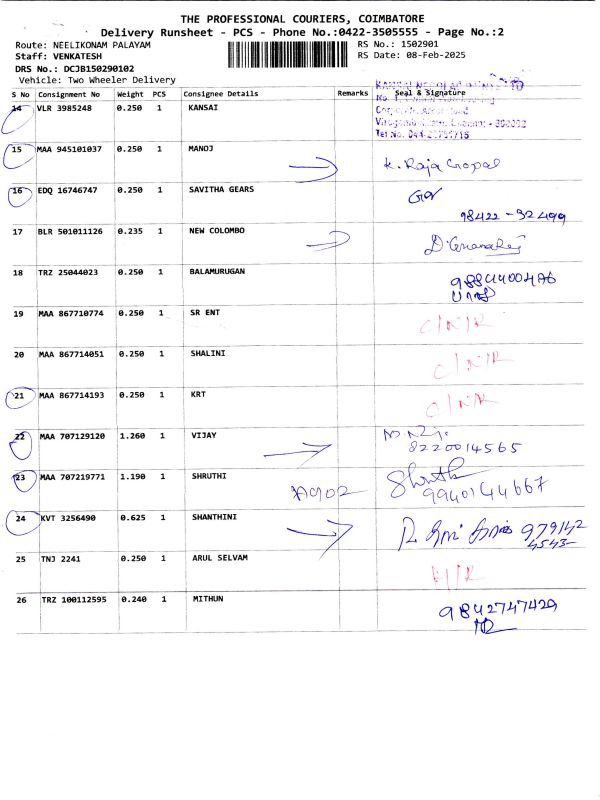 THE PROFESSIONAL COURIERS, COIMBATORE
Delivery Runsheet - PCS - Phone No.:0422-3505555 - Page No.:2
Route: NEELIKONAM PALAYAM RS No.: 1502901
Staff: VENKATESH RS Date: 08-Feb-2025
DRS No.: DCJB150290102
Vehicle: Two Wheeler Delivery
S No Consignment No Weight PCS Consignee Details Remarks Seal & Signature
14 VLR 3985248 0.250 1 KANSAI
Tel No. 044
15 MAA 945101037 0.250 1 MANOJ K. Raja Gopal
16 EDQ 16746747 0.250 1 SAVITHA GEARS
98422-32499
17 BLR 501011126 0.235 1 NEW COLOMBO
18 TRZ 25044023 0.250 1 BALAMURUGAN
19 MAA 867710774 0.250 1 SR ENT C/N/R
20 MAA 867714051 0.250 1 SHALINI C/N/R
21 MAA 867714193 0.250 1 KRT C/N/R
22 MAA 707129120 1.260 1 VIJAY
8220014565
23 MAA 707219771 1.190 1 SHRUTHI A902 Shruthi
9940144667
24 KVT 3256490 0.625 1 SHANTHINI 979142
4543-
25 TNJ 2241 0.250 1 ARUL SELVAM
26 TRZ 100112595 0.240 1 MITHUN 9842747429